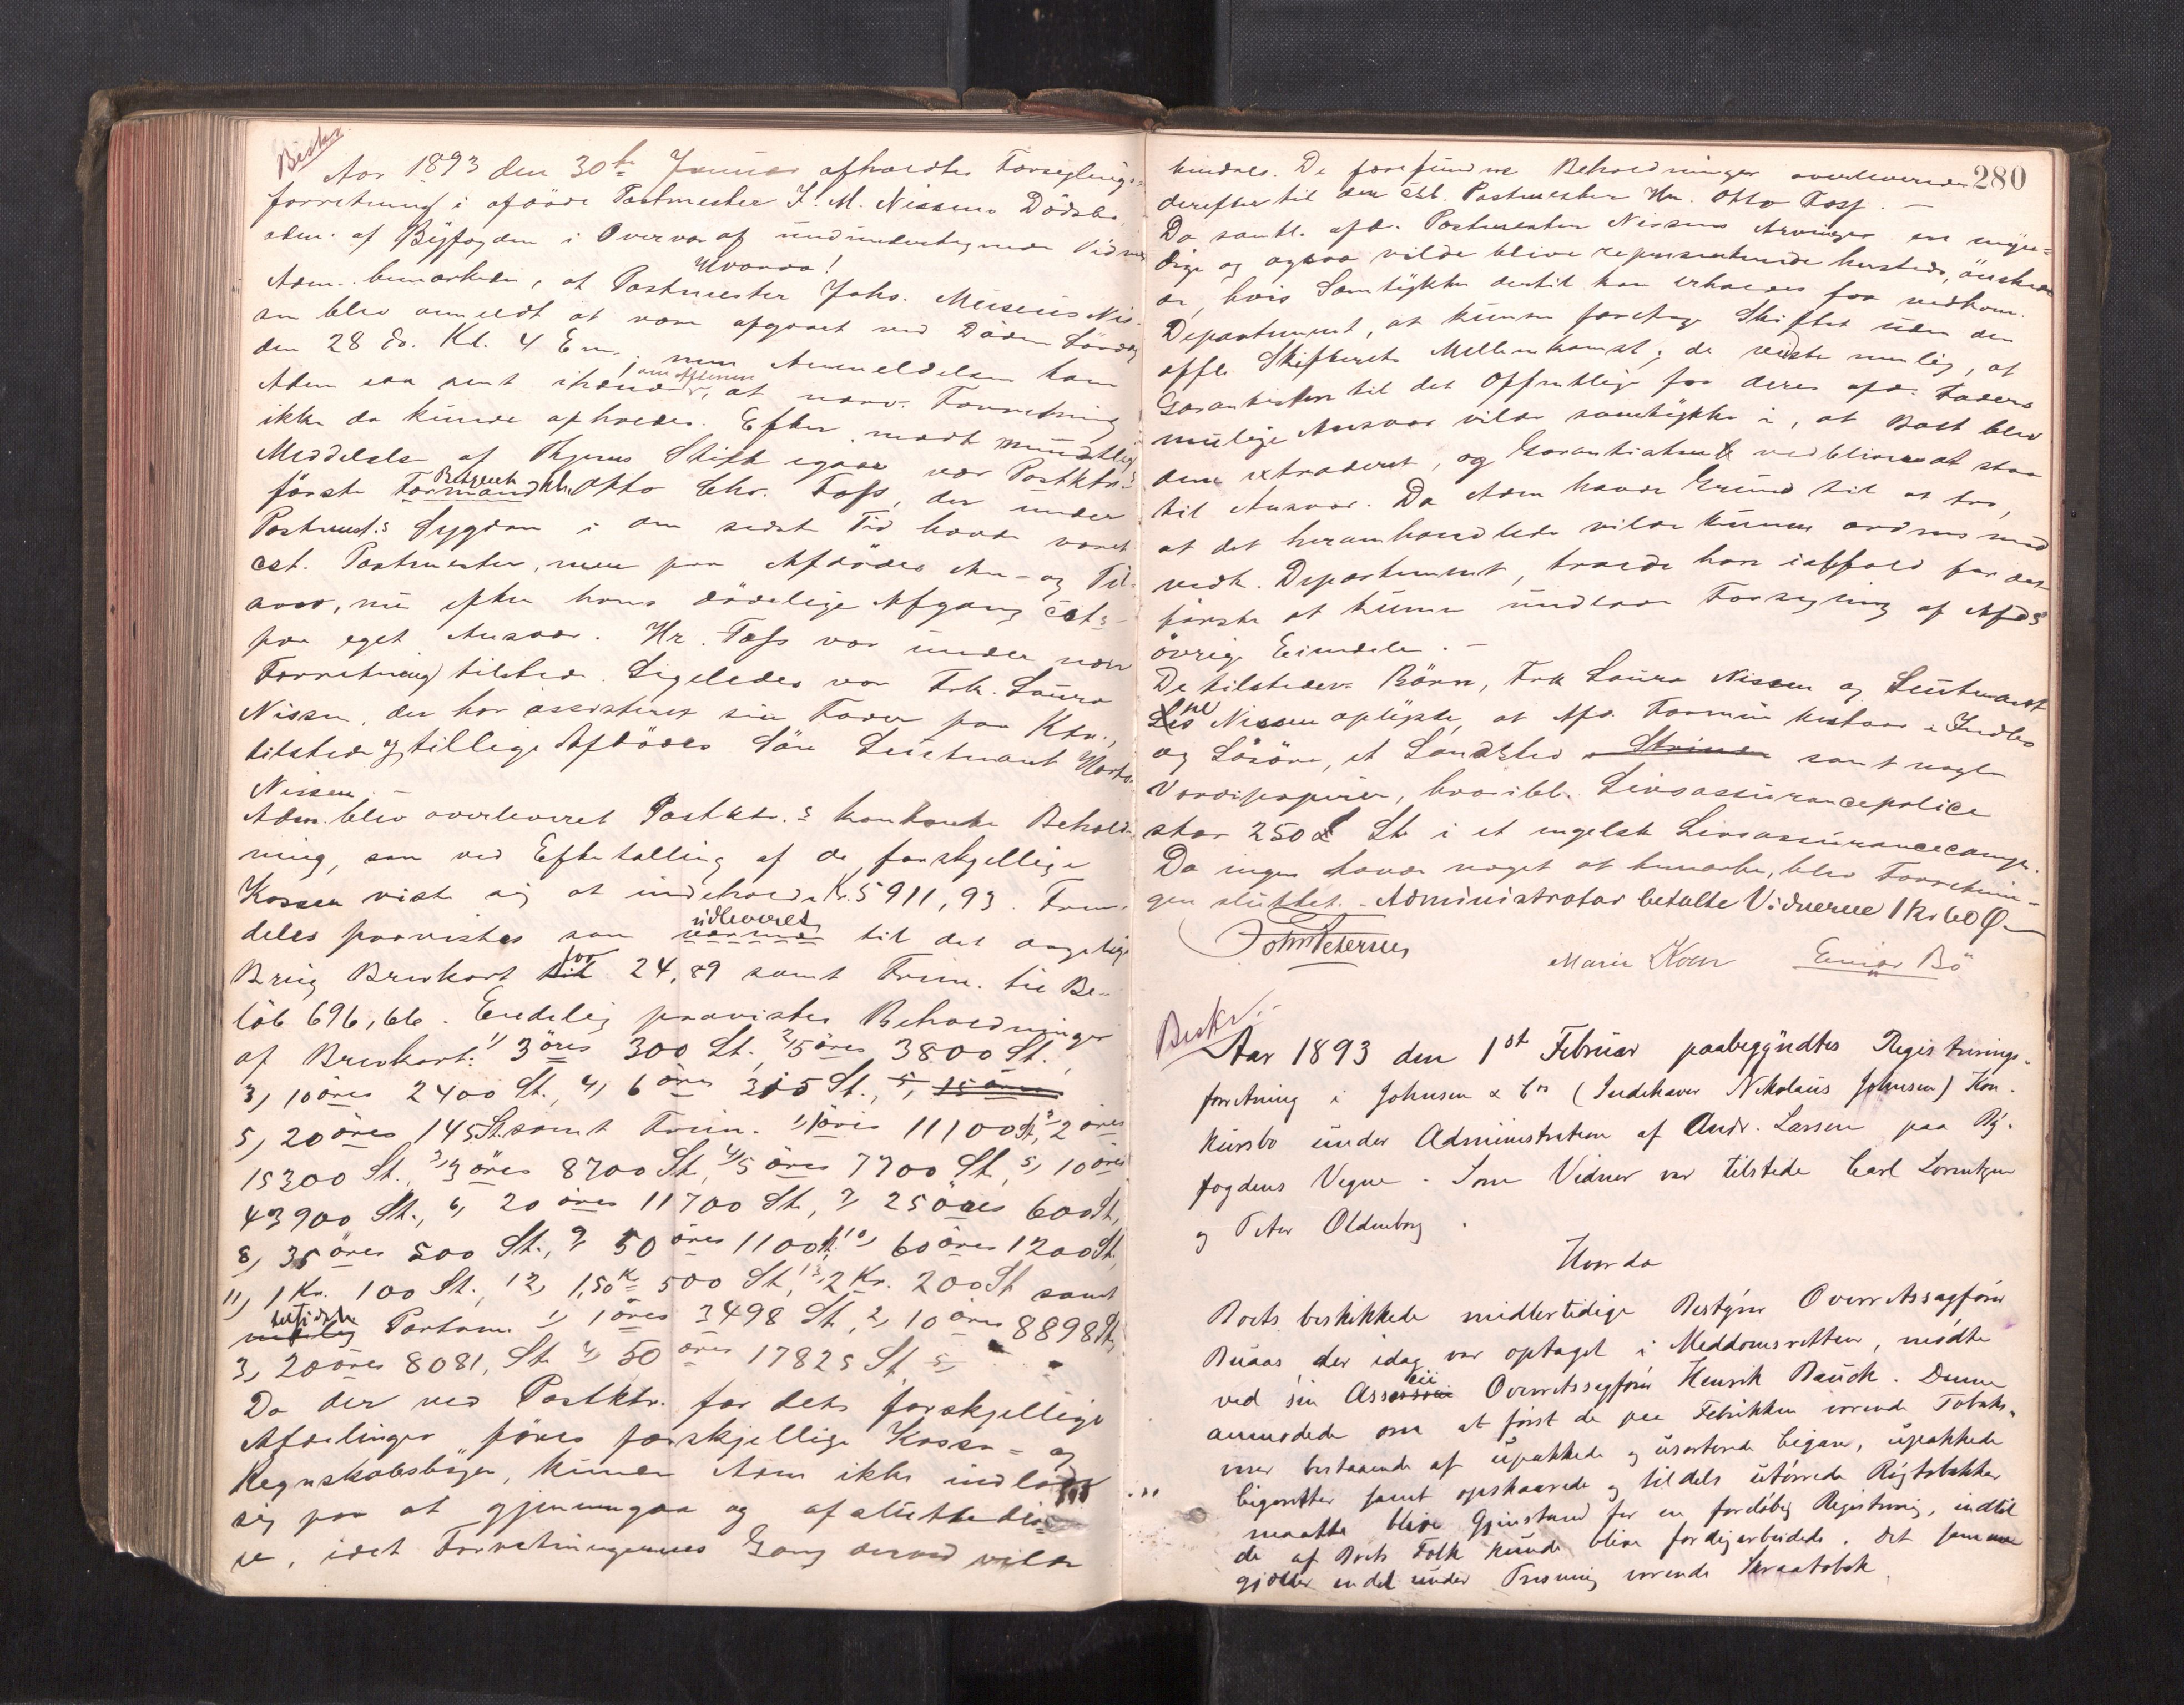 Beskr.
Aar 1893 den 30te Januar afholdtes Forseglings-
forretning i afdøde Postmester J. M. Nissens Dödsbo,
adm. af Byfogden i Overvær af undertegnede Vidner
Hvorda!
Adm. bemærkede, at Postmester Johs. Musæus Nis-
sen blev anmeldt at være afgaaet ved Døden Lørdag
den 28 ds. Kl. 4 Em., men Anmeldelsen kom
Adm saa sent ihænde, om Aftenen at nærv. Forretning
ikke da kunde afholdes. Efter modt. mundtlig
Meddelelse af Thjems Stift igaar var Postktr.s
første Betjent Hr. Otto Chr. Foss, der under
Postmest.s Sygdom i den sidste Tid havde været
cst. Postmester, men paa Afdödes An- og Til-
svar, nu efter hans dödelige Afgang cst.
paa eget Ansvar. Hr. Foss var under nærv
Forretning tilstede. Ligeledes var Frk. Laura
Nissen, der har assisteret sin Fader paa Ktr.,
tilstede og tillige Afdödes Sön Leutnant Hartv.
Nissen. -
Adm. blev overleveret Postktr.s kontante Behold-
ning, som ved Eftertælling af de forskjellige
Kasser viste sig at indeholde Kr. 5911,93. Frem-
deles paavistes som udleveret til det daglige
Brug Brevkort for 24,89 samt Frim. til Be-
löb 696,66. Endelig paavistes Beholdninger
af Brevkort: 1) 3 öres 300 St., 2) 5 öres 3800 St.,
3) 10 öres 2400 St., 4) 6 öres 315 St., 5) 15 öres
5) 20 öres 145 St. samt Frim. 1) 1 öres 11100 St, 2) 2 öres
15300 St., 3) 3 öres 8700 St, 4) 5 öres 7700 St, 5) 10 öres
43900 St., 6) 20 öres 11700 St, 7) 25 öres 600 St,
8) 35 öres 500 St., 9) 50 öres 1100 St. 10) 60 öres 1200 St.
11) 1 Kr. 100 St., 12) 1,50 Kr 500 St, 13) 2 Kr. 200 St samt
Portom. 1) 1 öres 3498 St, 2) 10 öres 8898 St,
3) 20 öres 8081 St. 4) 50 öres 17825 St 5)
Da der ved Postktr. for dets forskjellige
Afdelinger föres forskjellige Kasse- og
Regnskabsböger, kunde Adm ikke indlade
sig paa at gjennemgaa og afslutte dis-
se, idet Forretningernes Gang derved vilde
280
hindres. De forefundne Beholdninger overleveredes
derefter til den cst. Postmester Hr. Otto Foss. -
Da samtl. afd. Postmester Nissens Arvinger ere myn-
dige og ogsaa vilde blive repræsenterede hersteds, önskede
de, hvis Samtykke dertil kan erholdes fra vedkom.
Departement, at kunne foretage Skiftet uden den
offtl. Skifterets Mellemkomst; de vidste nemlig, at
Garantisten til det Offentlige for deres afd. Faders
mulige Ansvar vilde samtykke i, at Boet blev
dem extraderet, og Garantisten vedblive at staa
til Ansvar. Da Adm havde Grund til at tro,
at det heromhandlede vilde kunne ordnes med
vedk. Departement, troede han iaffald for det
förste at kunne undlade Forsegling af Afd.s
övrige Eiendele. -
De tilstedev. Börn, Frk Laura Nissen og Leutnant
Nissen oplyste, at Afd. Formue bestaar i Indbo
og Lösöre, et Landsted Strinda samt nogle
Værdipapirer, hvoribl. Livsassurancepolice
stor 250 £ St. i et engelsk Livsassurancecomp.
Da ingen havde noget at bemærke, blev Forretnin-
gen sluttet. - Administrator betalte Vidnerne 1 Kr 60 Ø
John Petersen
Marie Koen Einar Bö
Beskr.
Aar 1893 den 1st Februar paabegyndtes Registrerings-
forretning i Johnsen & Co (Indehaver Nikolaus Johnsen) Kon-
kursbo under Administration af Andr. Larsen paa By-
fogdens Vegne. Som Vidner var tilstede Carl Lorentzen
og Peter Oldenborg.
Hvorda
Boets beskikkede midlertidige Bestyrer Overretssagfører
Buaas, der idag var optaget i Meddomsretten, mødte
ved sin Overretssagfører Henrik Bauck. Denne
anmodede om at først de paa Fabrikken værende Tobaks-
varer bestaaende af upakkede og usorterede Cigarer, upakkede
Cigaretter samt opskaarede og tildels utørrede Røgtobakker
maatte blive Gjenstand for en foreløbig Registrering, indtil
de af Boets Folk kunde blive færdigarbeidede. Det samme
gjælder endel under Presning værende Skraatobak.